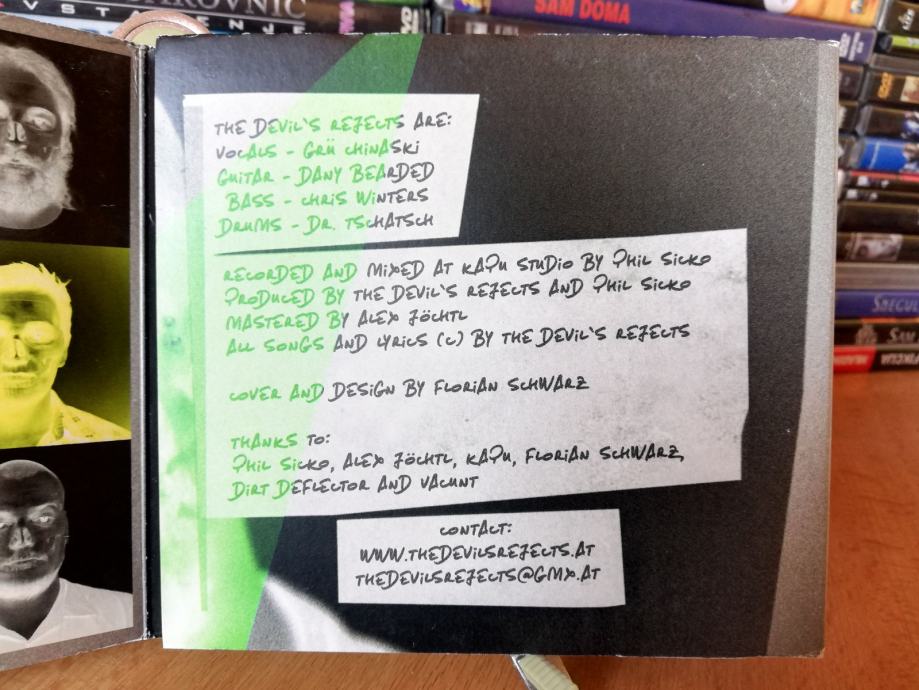 ROVNIC
VSTAJENJE
SAM DOMA
THE DEVIL'S REJECTS ARE:
VOCALS - GRÜ CHINASKI
GUITAR - DANY BEARDED
BASS - CHRIS WINTERS
DRUMS - DR. TSCHATSCH
RECORDED AND MIXED AT KAPU STUDIO BY PHIL SICKO
PRODUCED BY THE DEVIL'S REJECTS AND PHIL SICKO
MASTERED BY ALEX JÖCHTL
ALL SONGS AND LYRICS (C) BY THE DEVIL'S REJECTS
COVER AND DESIGN BY FLORIAN SCHWARZ
THANKS TO:
PHIL SICKO, ALEX JÖCHTL, KAPU, FLORIAN SCHWARZ,
DIRT DEFLECTOR AND VACUNT
CONTACT:
WWW.THEDEVILSREJECTS.AT
THEDEVILSREJECTS@GMX.AT